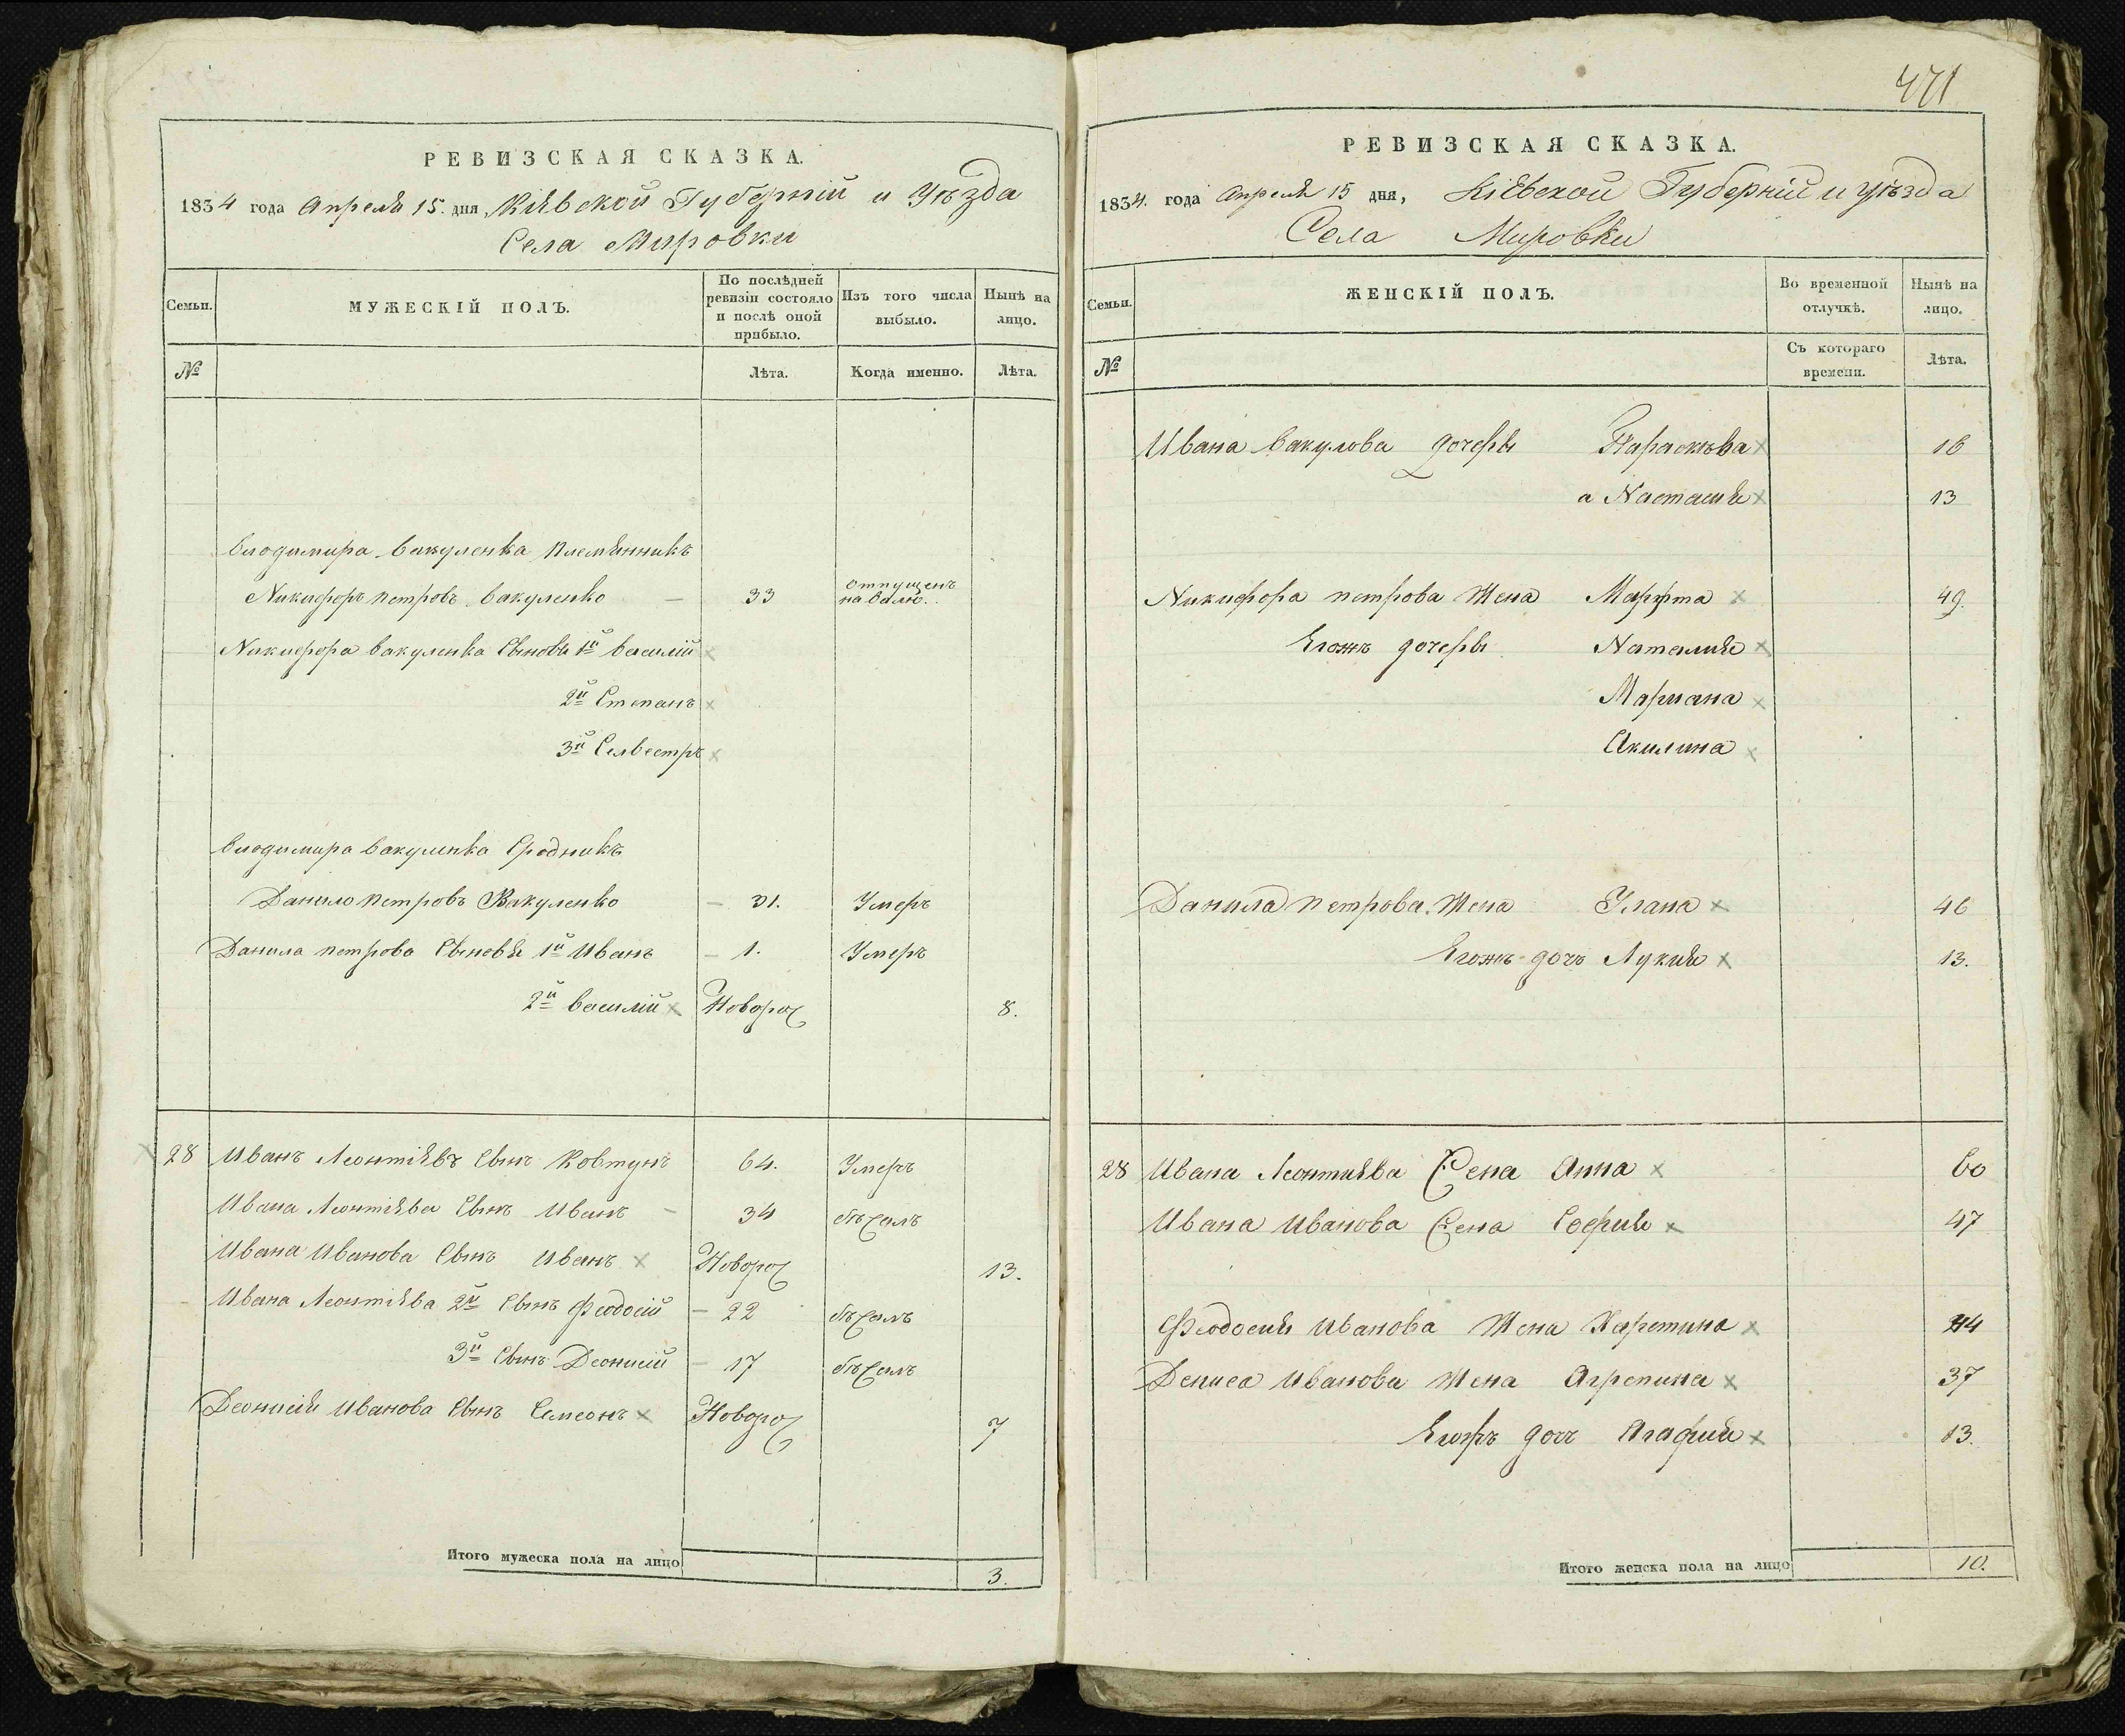 471
РЕВИЗСКАЯ СКАЗКА.
1834 года Апреля 15. дня Кіевской Губерніи и Уѣзда
Села Мировки
Семьи.
МУЖЕСКІЙ ПОЛЪ.
По послѣдней ревизіи состояло и послѣ оной прибыло.
Изъ того числа выбыло.
Нынѣ на лицо.
№
Лѣта.
Когда именно.
Лѣта.
Влодимира Вакуленка племянникъ
Никифоръ петровъ Вакуленко — 33 отпущенъ на волю.
Никифора Вакуленка Сыновья 1й василій
2й Степанъ
3й Селвестръ
Влодимира Вакуленка Сродникъ
Данило петровъ Вакуленко — 31. Умеръ
Данила петрова Сыновья 1й Иванъ — 1. Умеръ
2й василій Новорож 8.
28 Иванъ Леонтіевъ Сынъ Ковтунъ 64. Умеръ
Ивана Леонтіева Сынъ Иванъ — 34 бѣжалъ
Ивана Иванова Сынъ Иванъ Новорож 13.
Ивана Леонтіева 2й Сынъ Феодосій — 22 бѣжалъ
3й Сынъ Деонисій — 17 бѣжалъ
Деонисія Иванова Сынъ Семеонъ Новорож 7
Итого мужеска пола на лицо 3.
РЕВИЗСКАЯ СКАЗКА.
1834. года Апреля 15 дня, Кіевской Губерніи и уѣзда
Села Мировки
Семьи.
ЖЕНСКІЙ ПОЛЪ.
Во временной отлучкѣ.
Нынѣ на лицо.
№
Съ котораго времени.
Лѣта.
Ивана Вакулова дочеры Параскѣва 16
а Настасия 13
Никифора петрова Жена Марфта 49.
Егожъ дочеры Наталия
Мариана
Акилина
Данила петрова Жена Улана 46
Егожъ дочъ Лукия 13.
28 Ивана Леонтиева Жена Анна 60
Ивана Иванова Жена София 47
Феодосия Иванова Жена Харетина 44
Дениса Иванова Жена Агрепина 37
Егожъ дочъ Агафия 13.
Итого женска пола на лицо 10.